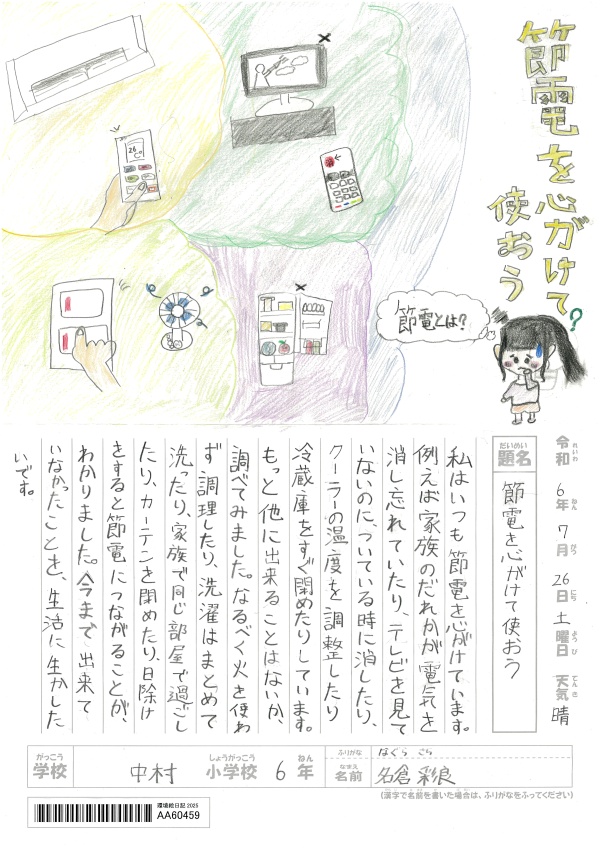 節電を心がけて
使おう
節電とは?
?
26
令和6年7月26日土曜日 天気 晴
れいわ ねん がつ にち ようび てんき
だいめい
題名
節電を心がけて使おう
私はいつも節電を心がけています。
例えば家族のだれかが電気を
消し忘れていたり、テレビを見て
いないのに、ついている時に消したり、
クーラーの温度を調整したり
冷蔵庫をすぐ閉めたりしています。
もっと他に出来ることはないか、
調べてみました。なるべく火を使わ
ず調理したり、洗濯はまとめて
洗ったり、家族で同じ部屋で過ごし
たり、カーテンを閉めたり、日除け
をすると節電につながることが、
わかりました。今まで出来て
いなかったことを、生活に生かした
いです。
がっこう しょうがっこう ねん
学校 中村 小学校 6年
ふりがな はぐら さら
なまえ
名前 名倉 彩良
(漢字で名前を書いた場合は、ふりがなをふってください)
環境絵日記 2025
AA60459